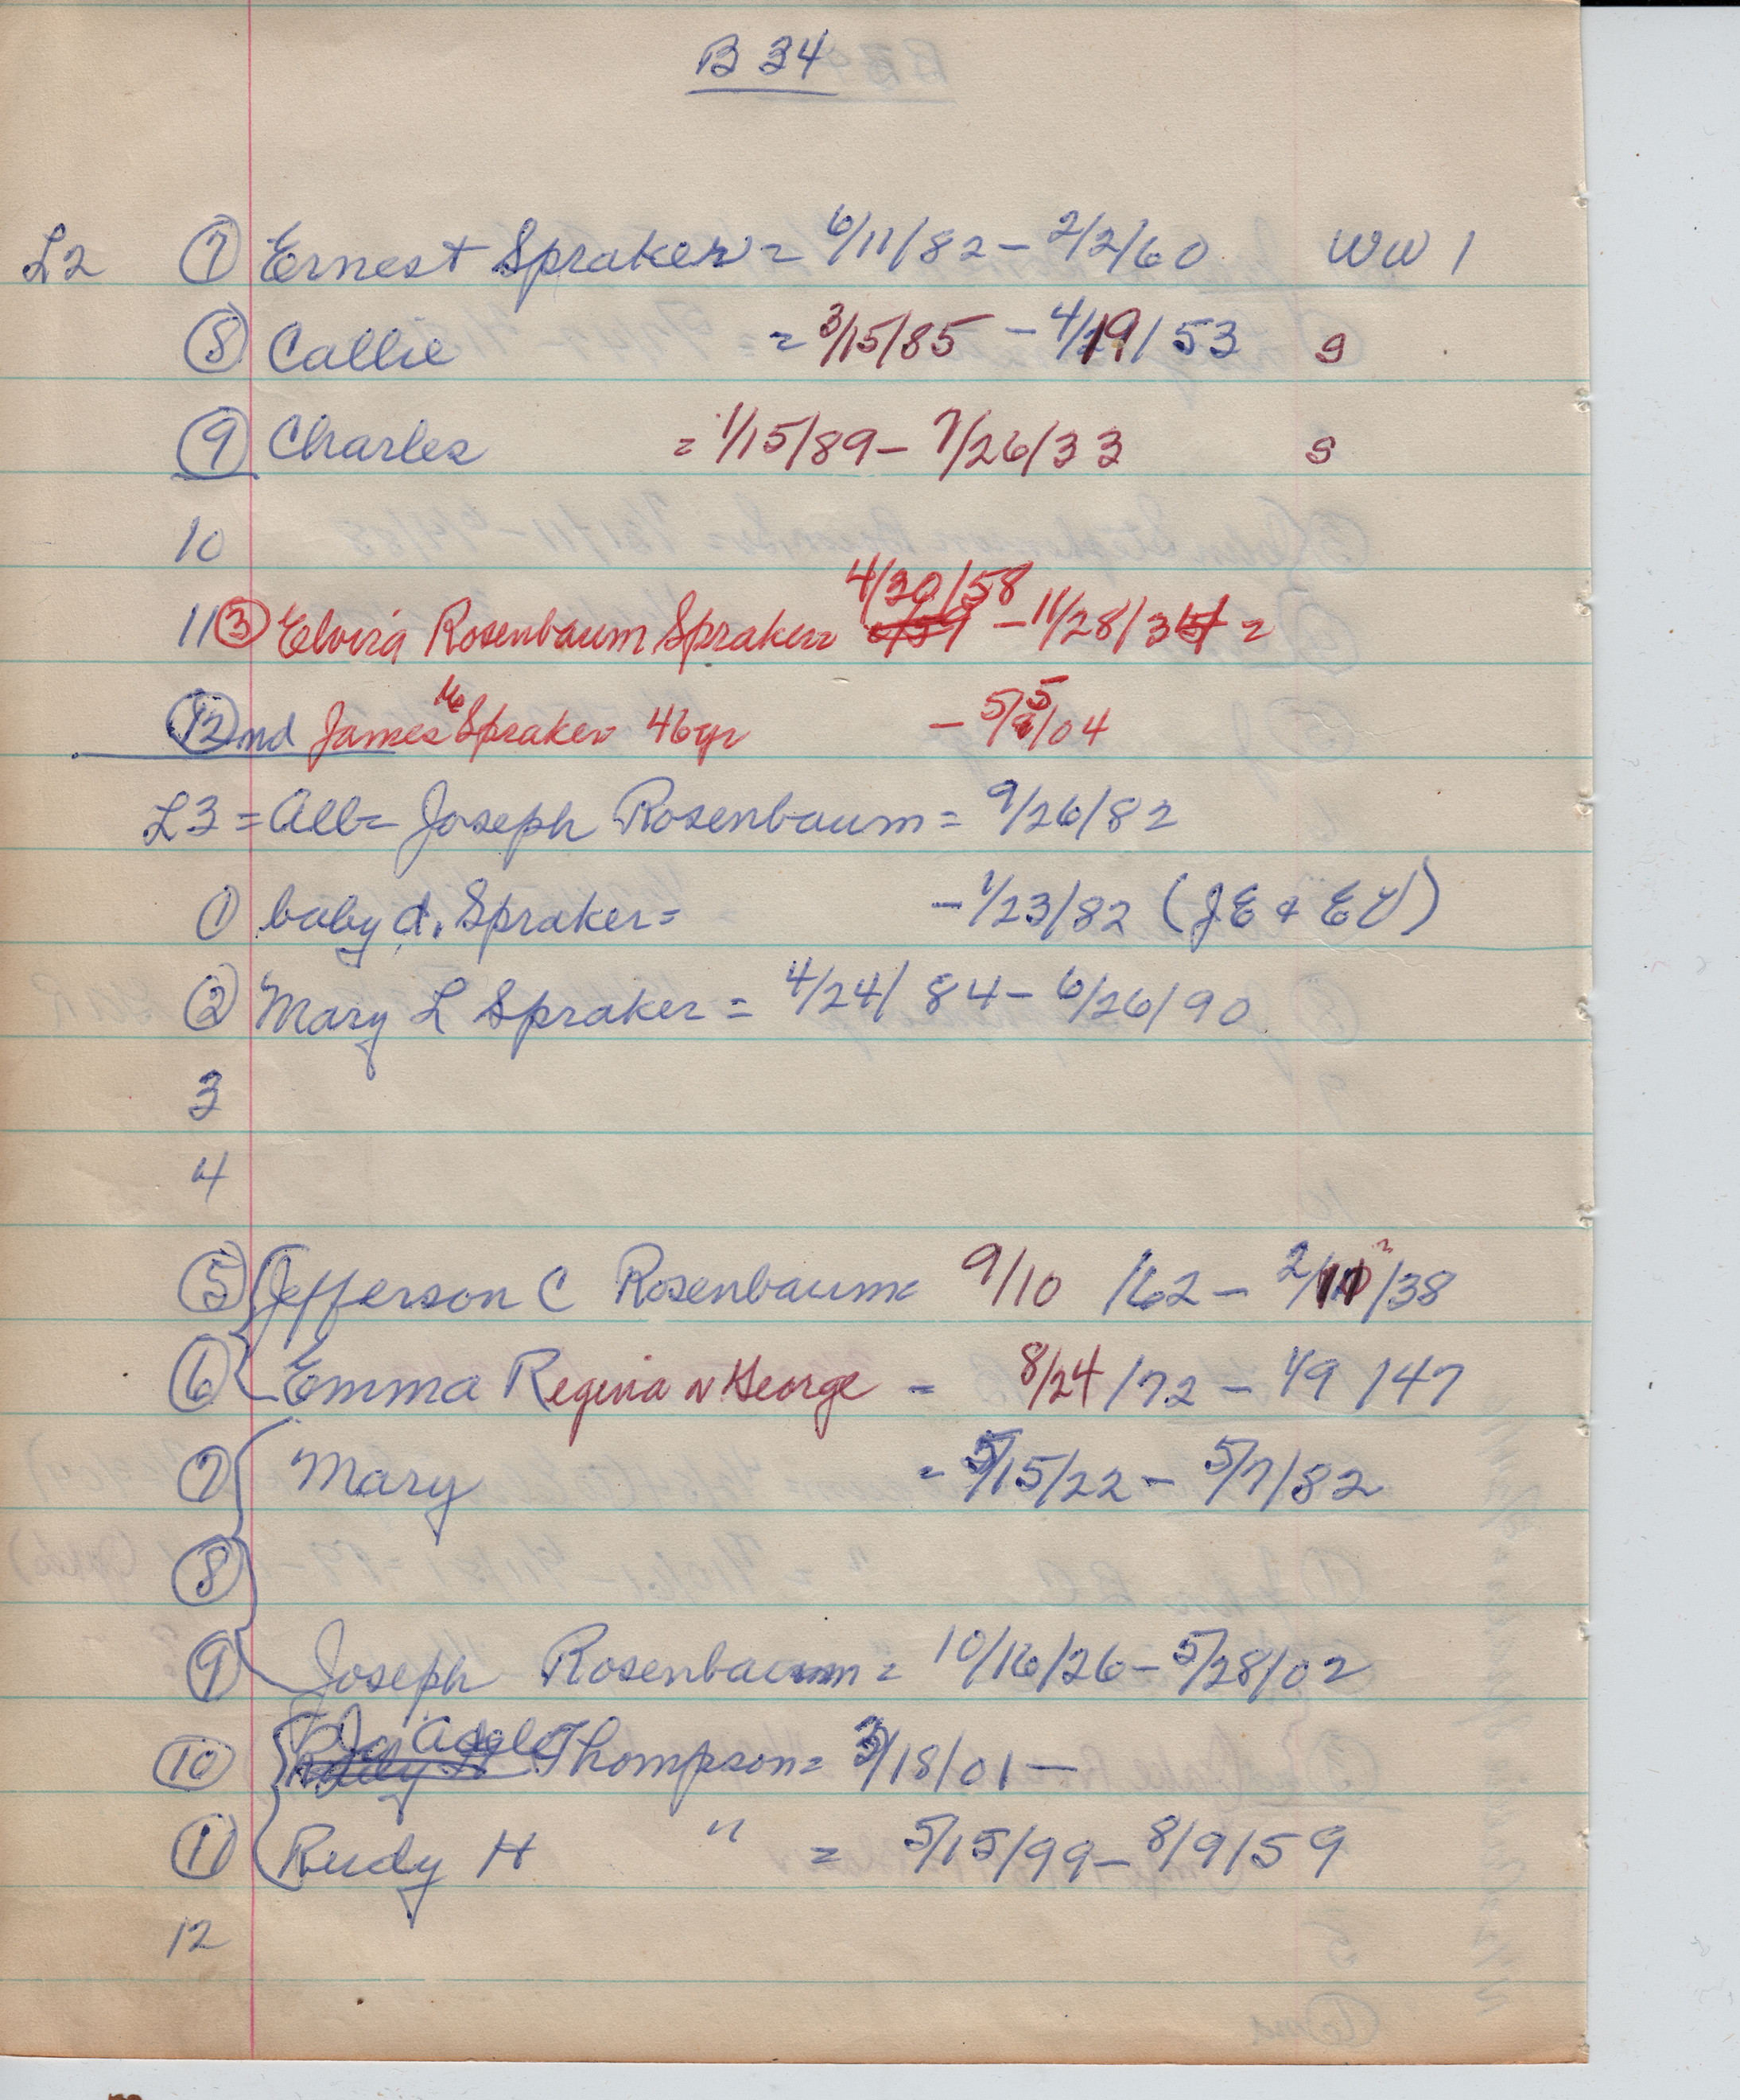 B 34
L2 ⑦ Ernest Spraker = 6/11/82 - 2/2/60 WW 1
⑧ Callie = 3/15/85 - 4/19/53 s
⑨ Charles = 1/15/89 - 7/26/33 s
10
11 ③ Elvira Rosenbaum Spraker = 4/30/58 - 11/28/3 =
⑫ nd James Mc Spraker 46yr - 5/5/04
L3 = All = Joseph Rosenbaum = 9/26/82
① baby d. Spraker = - 1/23/82 (JE & EV)
② Mary L Spraker = 4/24/84 - 6/26/90
3
4
⑤ Jefferson C Rosenbaum = 9/10/62 - /38
⑥ Emma Regina N George = 8/24/72 - 1/9/47
⑦ Mary = 5/15/22 - 5/7/82
⑧
⑨ Joseph Rosenbaum = 10/16/26 - 5/28/02
⑩ Thompson = 3/18/01 -
⑪ Rudy H " = 5/15/99 - 8/9/59
12